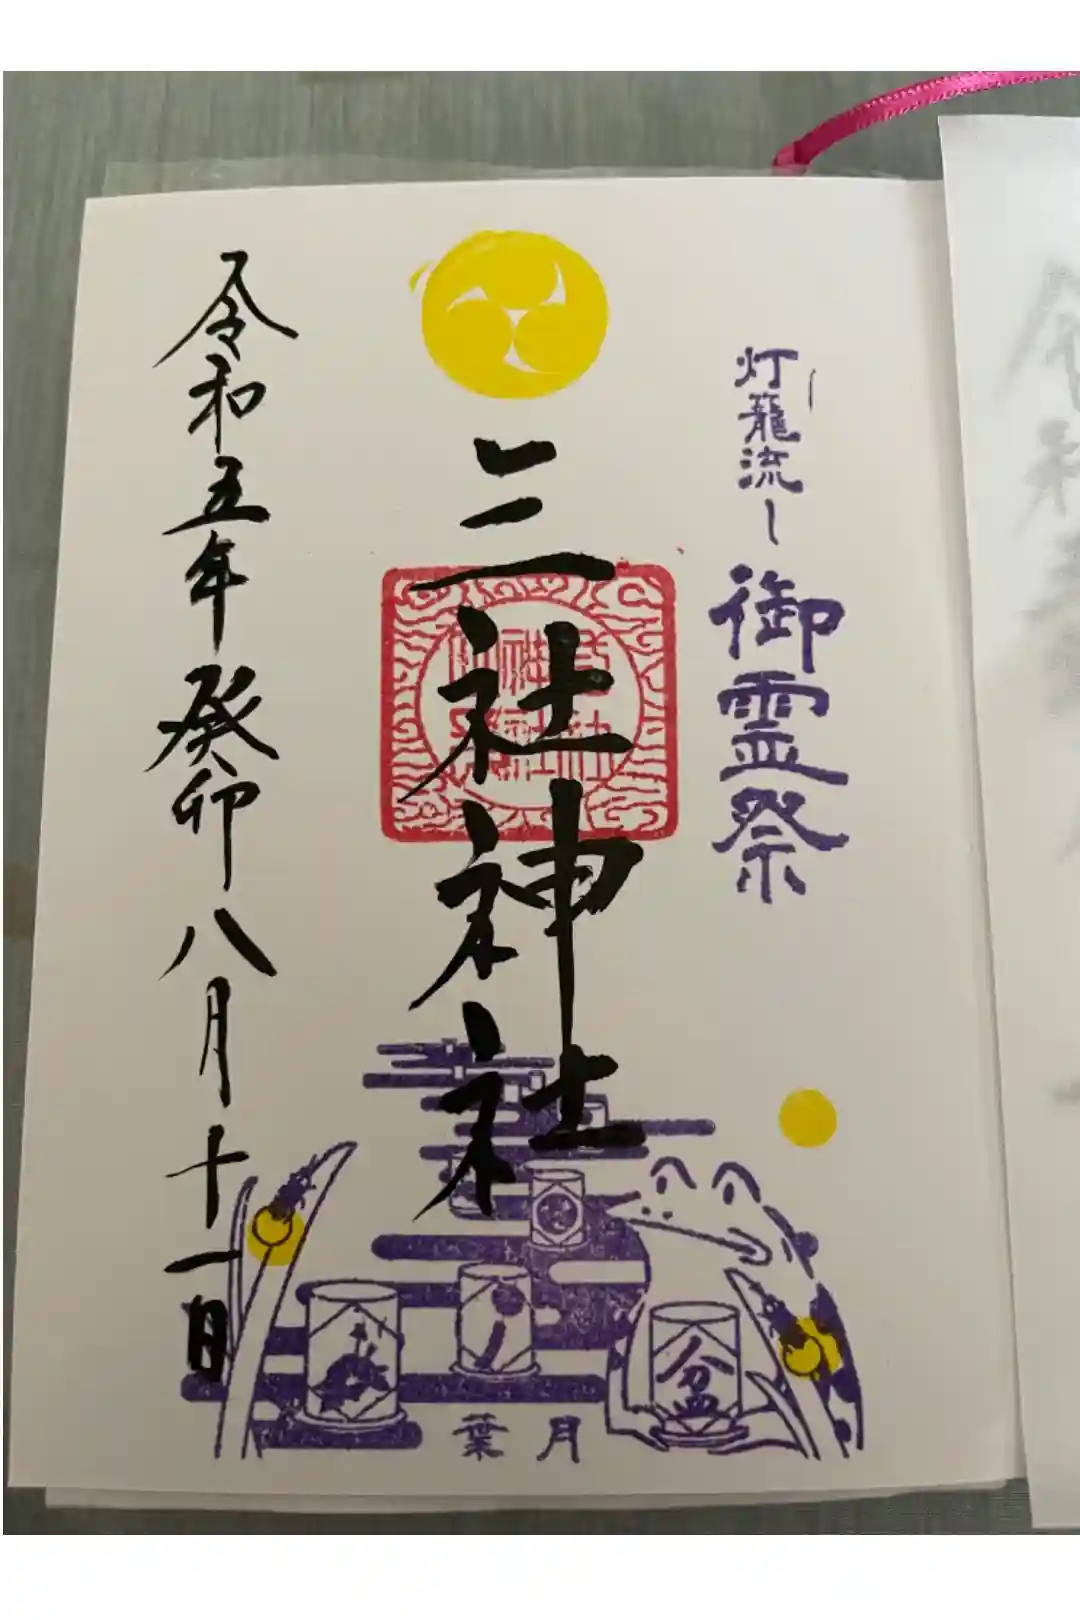 灯籠流し御霊祭
三社神社
令和五年癸卯八月十一日
盆
葉月